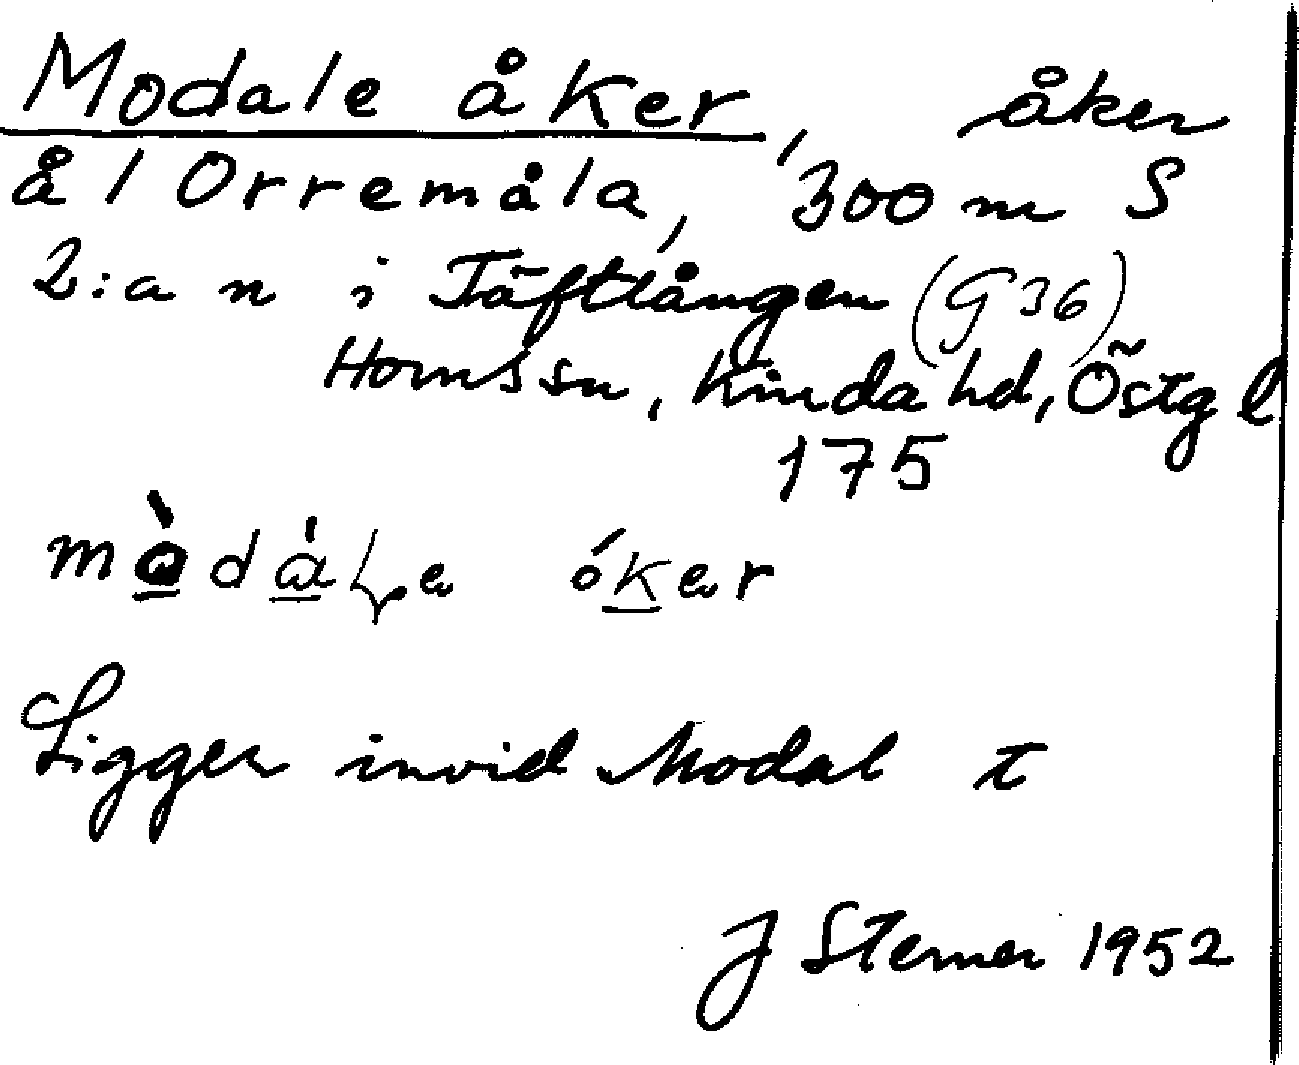 Modale åker, åker
å 1 Orremåla, 300 m S
2:a n i Täftlången (G 36)
Horns sn, Kinda hd, Östg l
175
Ligger invid Modal t
J Sterner 1952